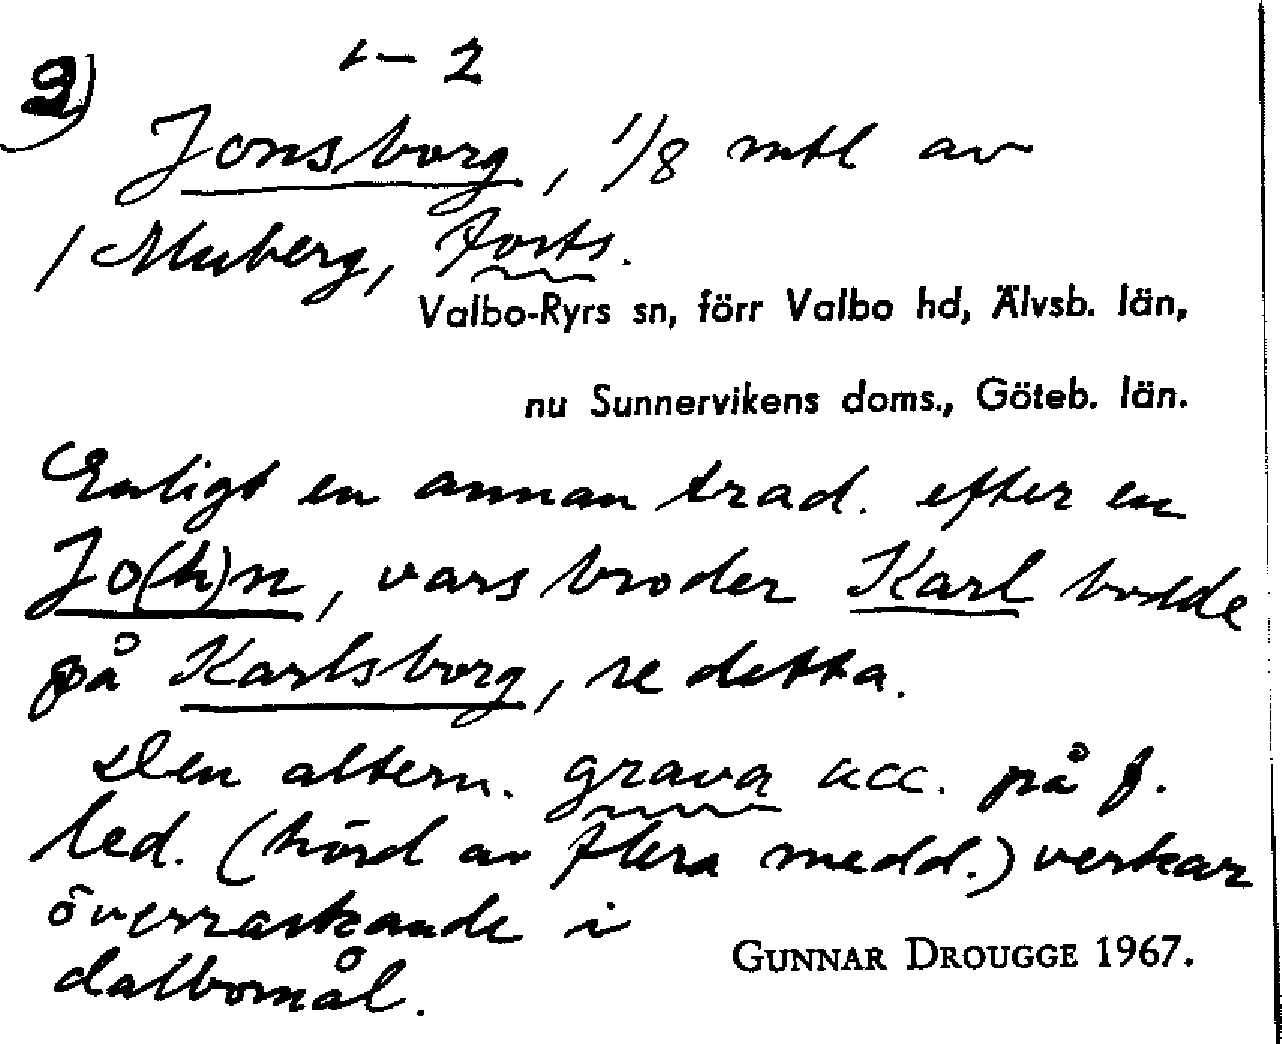 2)
1-2
Jonsborg, 1/8 mtl av
1 Muberg, forts.
Valbo-Ryrs sn, förr Valbo hd, Älvsb. län,
nu Sunnervikens doms., Göteb. län.
Enligt en annan trad. efter en
Jo(h)n, vars broder Karl bodde
på Karlsborg, se detta.
Den altern. grava acc. på f.
led. (hörd av flera medd.) verkar
överraskande i
dalbomål.
GUNNAR DROUGGE 1967.